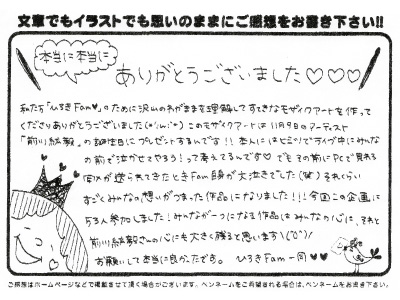 文章でもイラストでも思いのままにご感想をお書き下さい!!
本当に本当に
ありがとうございました♡♡♡
私たち「ひろきFam♥」のために沢山のわがままを理解してすてきなモザイクアートを作って
くださりありがとうございました このモザイクアートは11月9日のアーティスト
「前川紘毅」の誕生日にプレゼントするんです!!! 本人にはヒミツでライブ中にみんな
の前で泣かせてやろう!って考えてるんです♡ でもその前にPCで見れる
が送られてきたときFam自身が大泣きでした(笑) それくらい
すごくみんなの想いがつまった作品になりました!!! 今回この企画に
53人参加しました!みんなが一つになる作品はみんなの心に、それと
前川紘毅さんの心にも大きく残ると思います\(^o^)/
お願いして本当に良かったです。 ひろきFam一同♥♥
ご感想はホームページなどで掲載させて頂く場合がございます。ペンネームをご希望される場合は、ペンネームをお書き下さい。